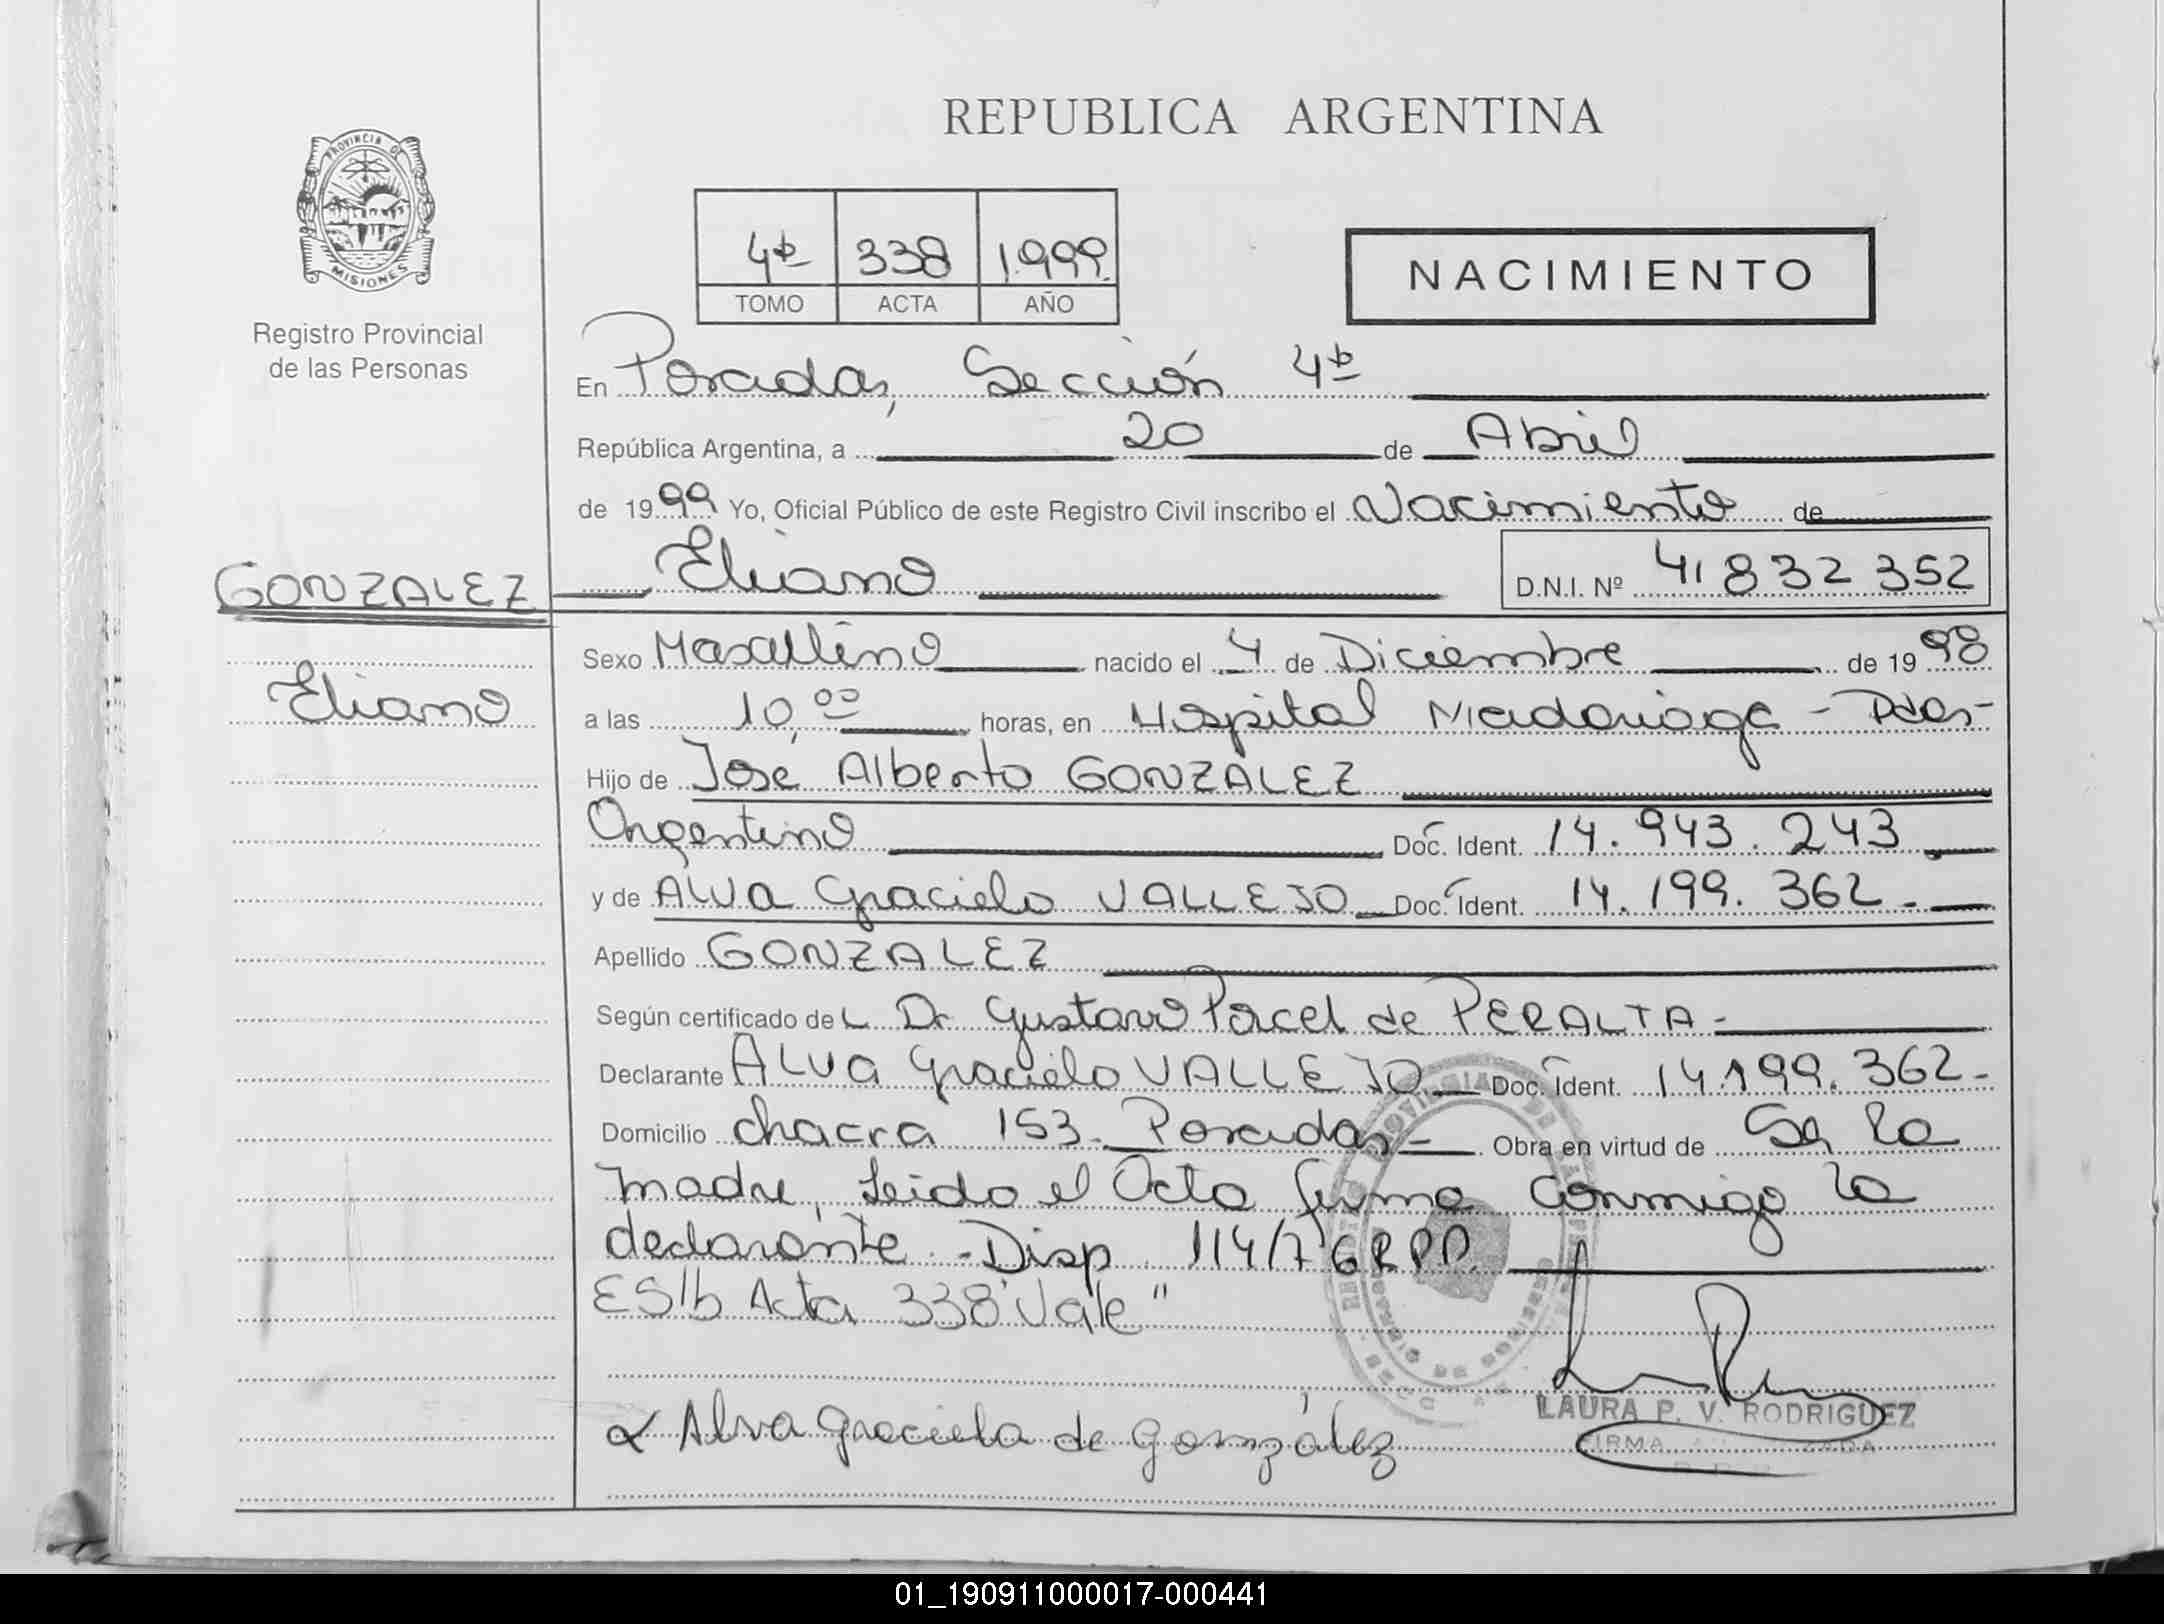 REPUBLICA ARGENTINA
PROVINCIA DE
MISIONES
Registro Provincial
de las Personas
4ta 338 1.999.
TOMO ACTA AÑO
NACIMIENTO
En Posadas, Sección 4ta
República Argentina, a 20 de Abril
de 1999 Yo, Oficial Público de este Registro Civil inscribo el Nacimiento de
GONZALEZ Eliano D.N.I. Nº 41 832 352
Sexo Masculino nacido el 4 de Diciembre de 1998
Eliano
a las 10,00 horas, en Hospital Madariaga - Pdas-
Hijo de José Alberto GONZALEZ
Argentino Doc. Ident. 14.943.243
y de Alva Graciela VALLEJO Doc. Ident. 14.199.362-
Apellido GONZALEZ
Según certificado del Dr Gustavo Porcel de PERALTA-
Declarante ALVA Graciela VALLEJO Doc. Ident. 14.199.362-
Domicilio chacra 153- Posadas- Obra en virtud de Ser la
madre, Leido el Acta firma conmigo la
declarante.-Disp. 114/7 GRPP.
ES/b Acta 338 "Vale"
LAURA P. V. RODRIGUEZ
FIRMA
Alva Graciela de González
01_190911000017-000441